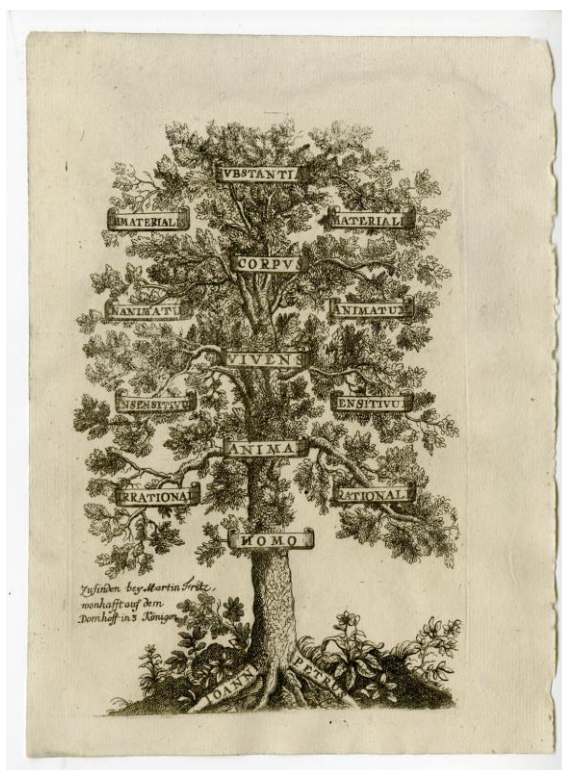 VBSTANTI
MMATERIAL
MATERIAL
CORPVS
NANIMATU
ANIMATUM
VIVENS
NSENSITIVU
ENSITIVU
ANIMA
RRATIONAL
RATIONAL
HOMO
Zufinden bey Martin Fritz,
wonhafft auf dem
Domhoff in 3 Königen
IOANN
PETRUS